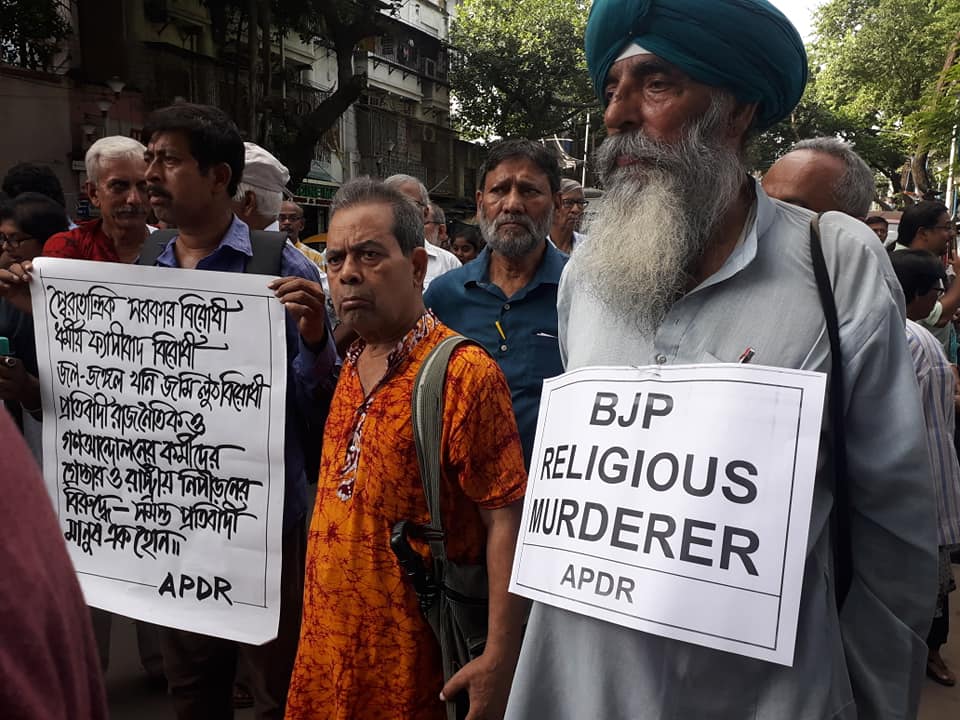 স্বৈরতান্ত্রিক সরকার বিরোধী
ধর্মীয় ফ্যাসীবাদ বিরোধী
জল-জঙ্গল খনি জমি লুঠ বিরোধী
প্রতিবাদী রাজনৈতিক ও
গণআন্দোলনের কর্মীদের
গ্রেপ্তার ও রাষ্ট্রীয় নিপীড়নের
বিরুদ্ধে - সমস্ত প্রতিবাদী
মানুষ এক হোন॥
APDR
BJP
RELIGIOUS
MURDERER
APDR